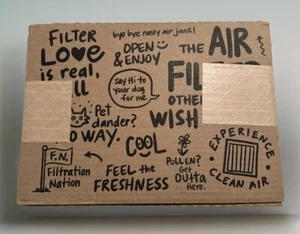 FILTER
LOVE
is real,
bye bye nasty air junk!
OPEN
& ENJOY
THE AIR
FIL
OTHE
WISH
Say Hi to
your dog
for me.
Pet
dander?
O WAY.
COOL
F.N.
Filtration
Nation
FEEL the
FRESHNESS
POLLEN?
Get
OUTTA
Here.
EXPERIENCE
CLEAN AIR